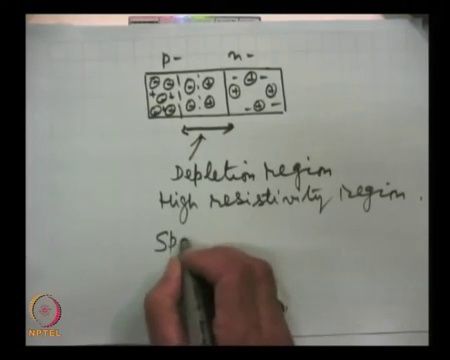 p- n-
Depletion region
High resistivity region.
Sp
NPTEL